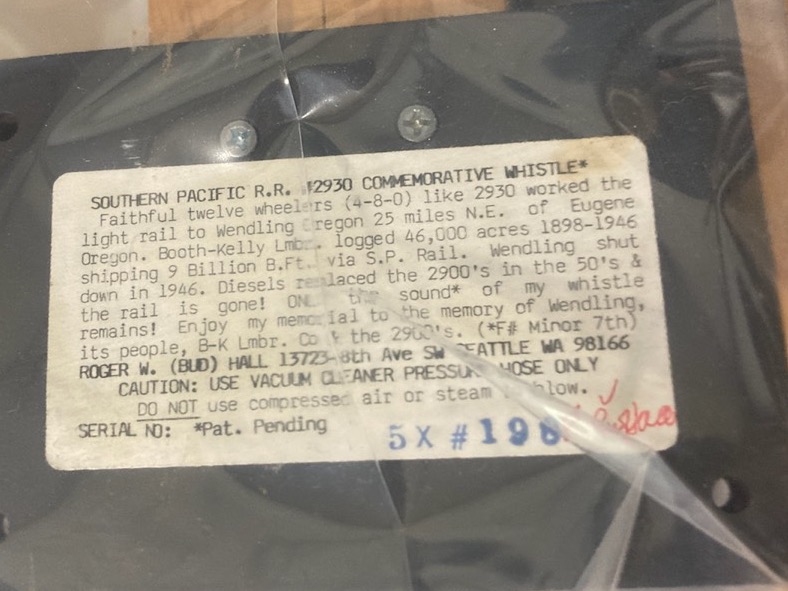 SOUTHERN PACIFIC R.R. #2930 COMMEMORATIVE WHISTLE*
Faithful twelve wheelers (4-8-0) like 2930 worked the
light rail to Wendling Oregon 25 miles N.E. of Eugene
Oregon. Booth-Kelly Lmbr. logged 46,000 acres 1898-1946
shipping 9 Billion B.Ft. via S.P. Rail. Wendling shut
down in 1946. Diesels replaced the 2900's in the 50's &
the rail is gone! ONLY the sound* of my whistle
remains! Enjoy my memorial to the memory of Wendling,
its people, B-K Lmbr. Co & the 2900's. (*F# Minor 7th)
ROGER W. (BUD) HALL 13723-8th Ave SW SEATTLE WA 98166
CAUTION: USE VACUUM CLEANER PRESSURE HOSE ONLY
DO NOT use compressed air or steam to blow.
SERIAL NO: *Pat. Pending 5X #198